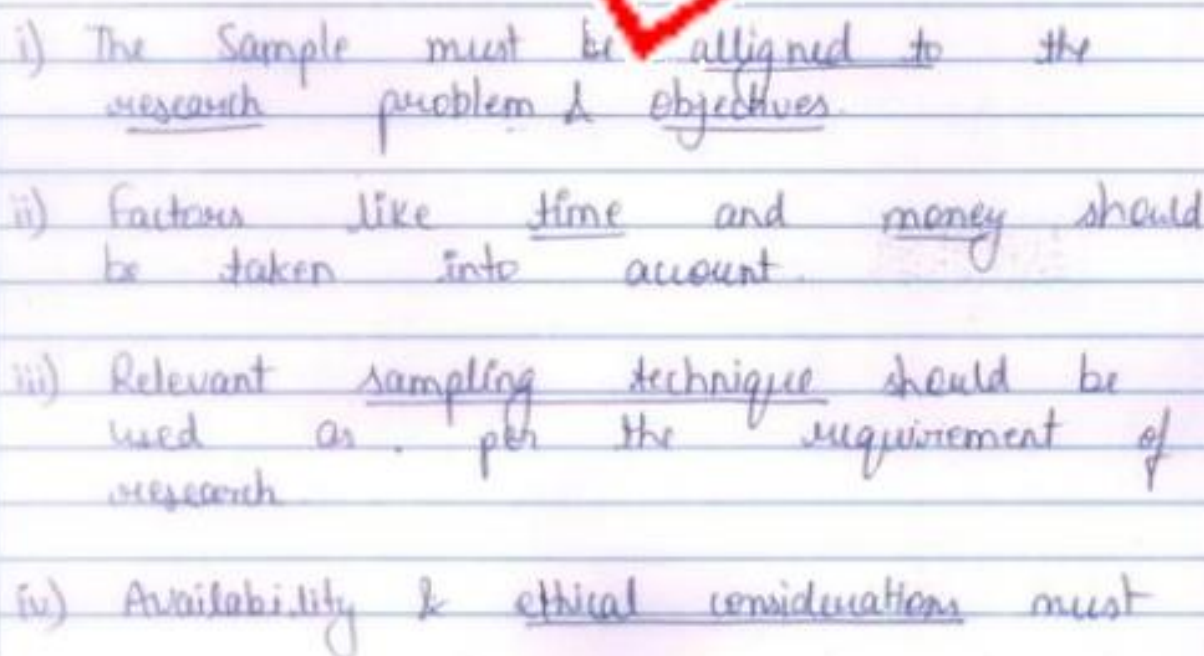 i) The Sample must be alligned to the
research problem & objectives.
ii) Factors like time and money should
be taken into account.
iii) Relevant sampling technique should be
used as per the requirement of
research
iv) Availability & ethical considerations must